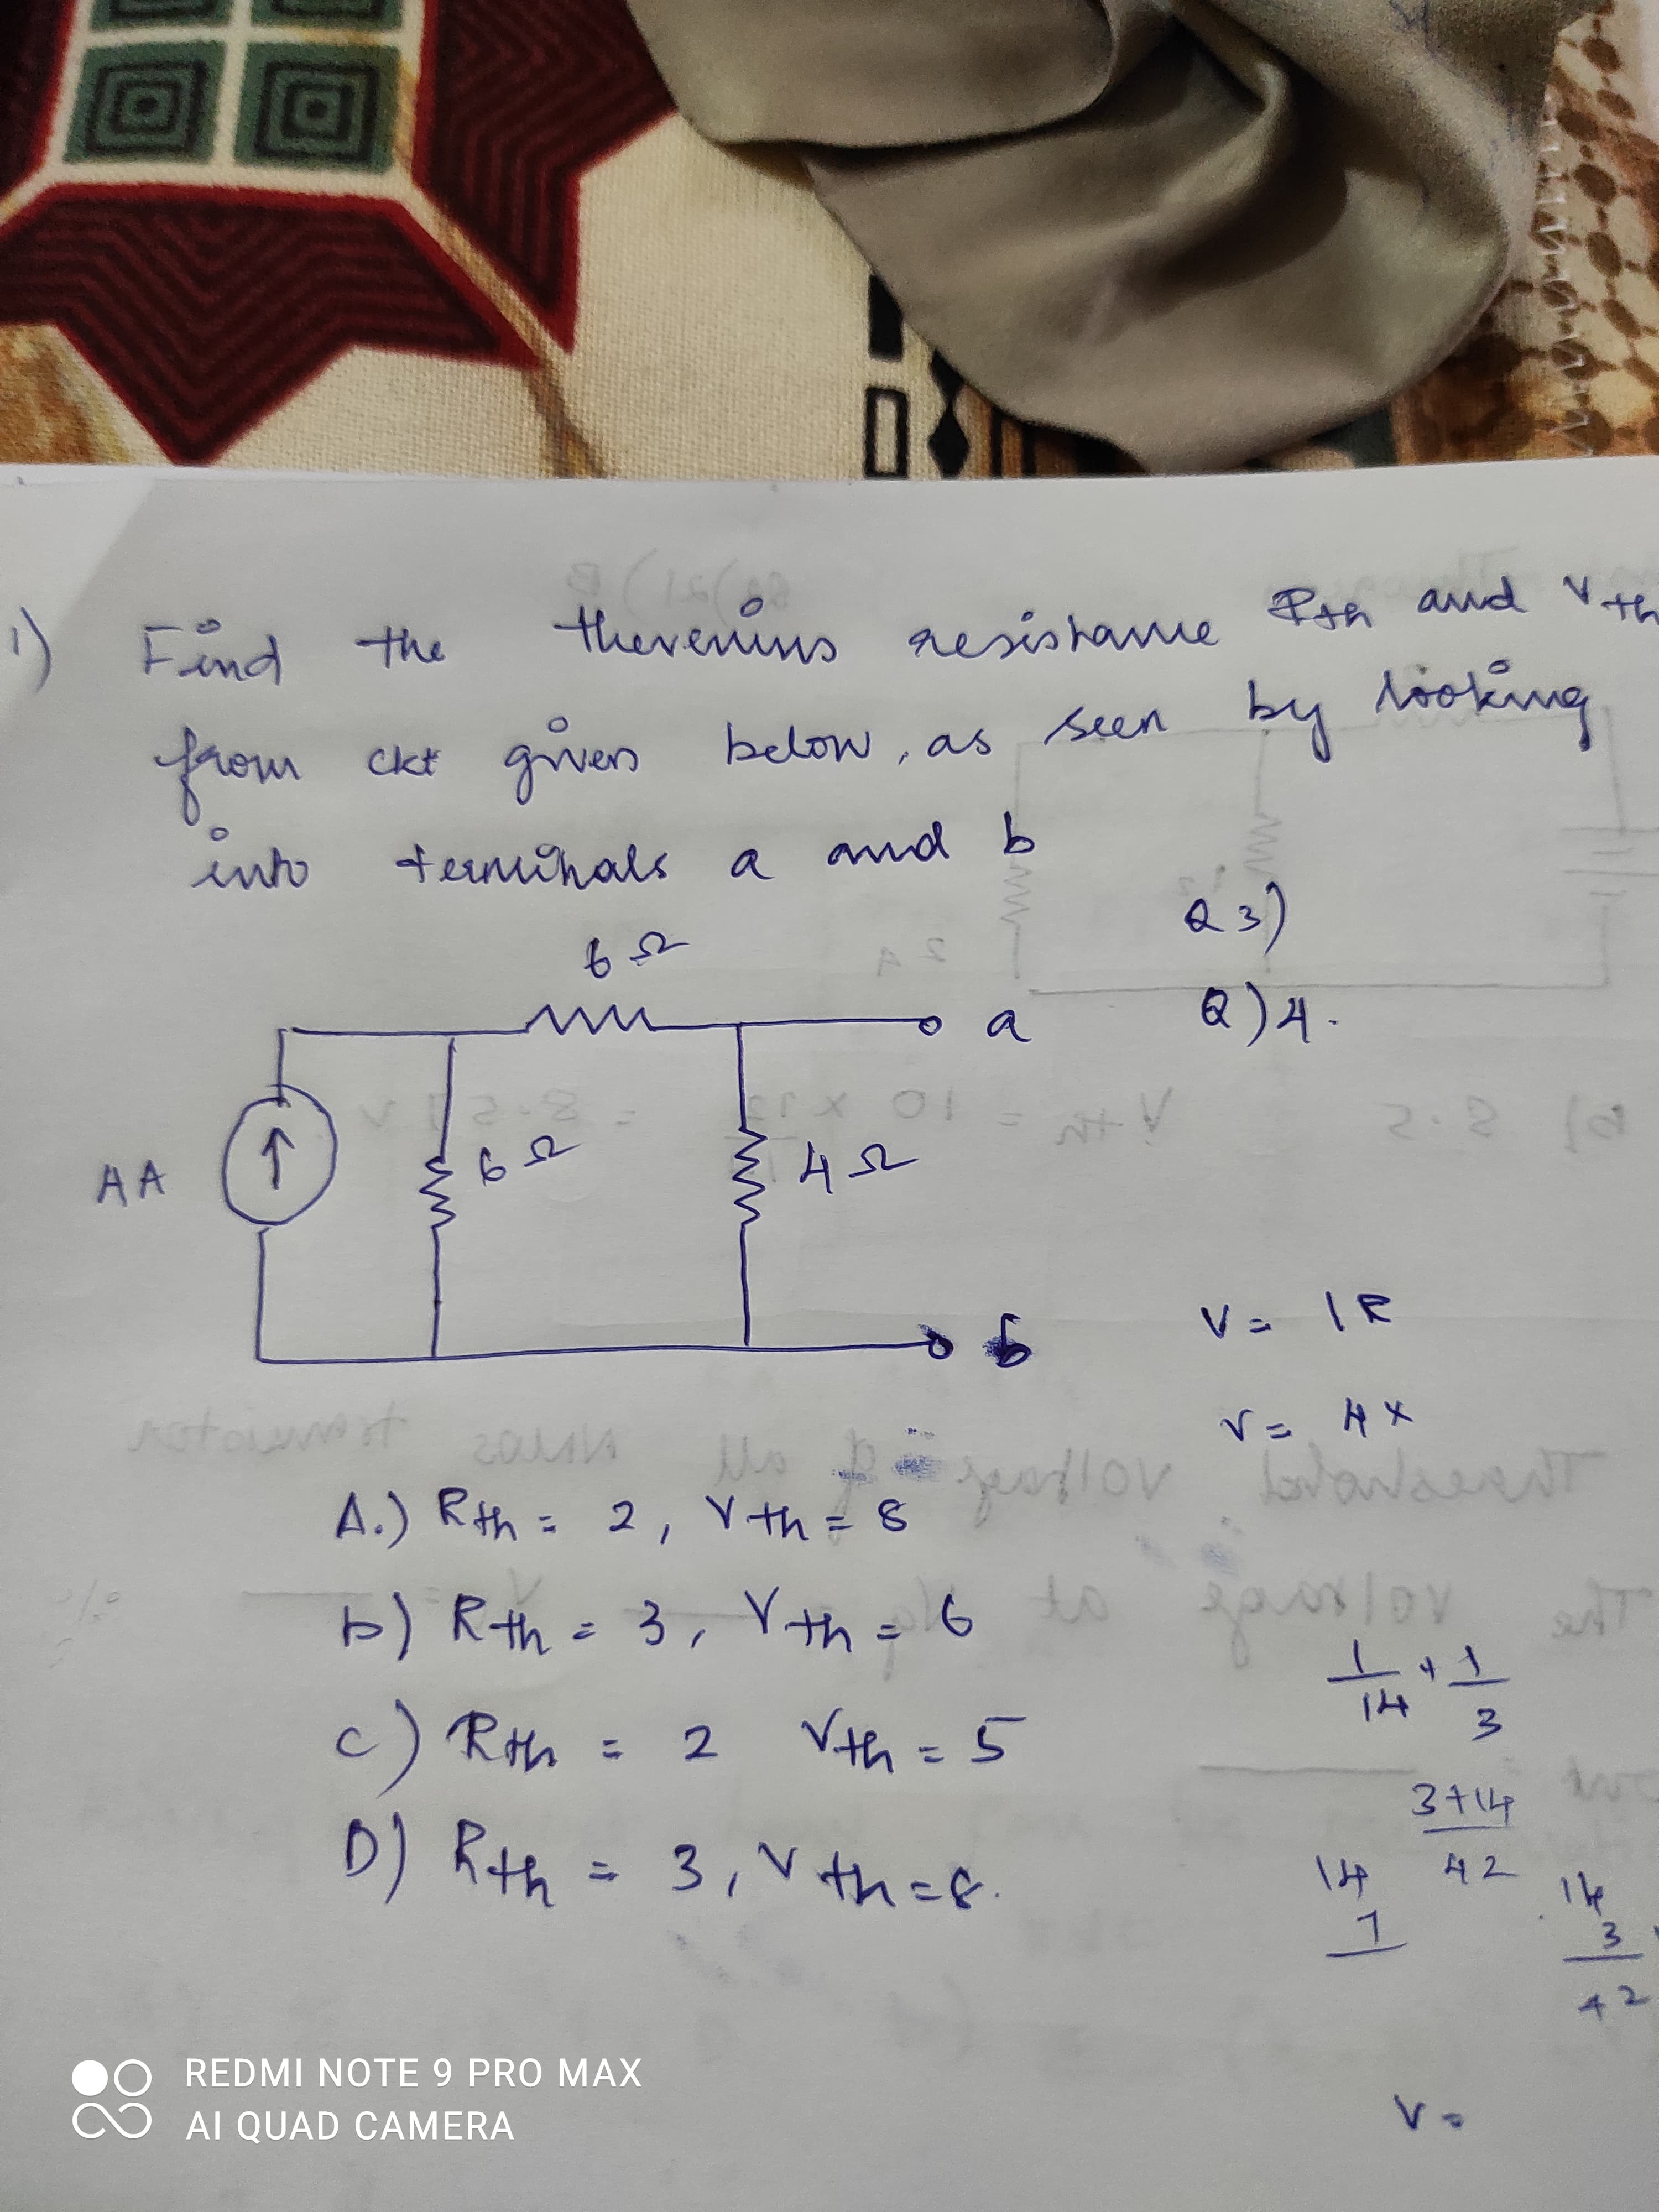 1) Find the thevenins resistance Rth and Vth
from ckt given below, as seen by looking
into terminals a and b
Q3)
6Ω
a
Q)4.
AA
6Ω
4Ω
b
V = IR
V = 4×
A.) Rth = 2, Vth = 8
b) Rth = 3, Vth = 6
C) Rth = 2 Vth = 5
D) Rth = 3, Vth = 8.
1/14 + 1/3
3+14
42
14
1
14
3
42
V =
REDMI NOTE 9 PRO MAX
AI QUAD CAMERA